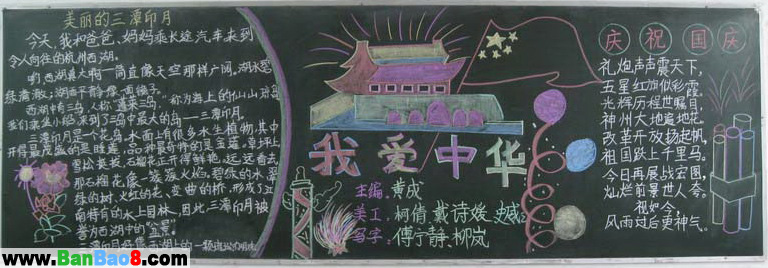 美丽的三潭印月
今天,我和爸爸、妈妈乘长途汽车来到
令人向往的杭州西湖。
哟,西湖真大啊!简直像天空那样广阔。湖水碧
绿清澈;湖面平静像一面镜子。
西湖中有三岛,人称"蓬莱三岛",称为海上的仙山琼岛
我们乘坐小船来到了三岛中最大的岛——三潭印月。
三潭印月是一个花岛,水面上有很多水生植物,其中
开得最茂盛的是睡莲,品种最奇特的是
雪松挺拔,石榴花正开得鲜艳,远远看去,
那石榴花像一簇簇火焰。碧绿的水、翠
绿的树、火红的花、变曲的桥,形成了江
南特有的水上园林。因此,三潭印月被
誉为西湖中的
三潭印月好像西湖上的一颗
我爱中华
主编:黄成
美工:柯倩、戴诗媛、史
写字:傅宁静、柳岚
庆祝国庆
礼炮声声震天下,
五星红旗似彩霞。
光辉历程世瞩目,
神州大地遍地花。
改革开放扬起帆,
祖国跃上千里马。
今日再展战宏图,
灿烂前景世人夸。
视如今,
风雨过后更神气。
www.BanBao8.com